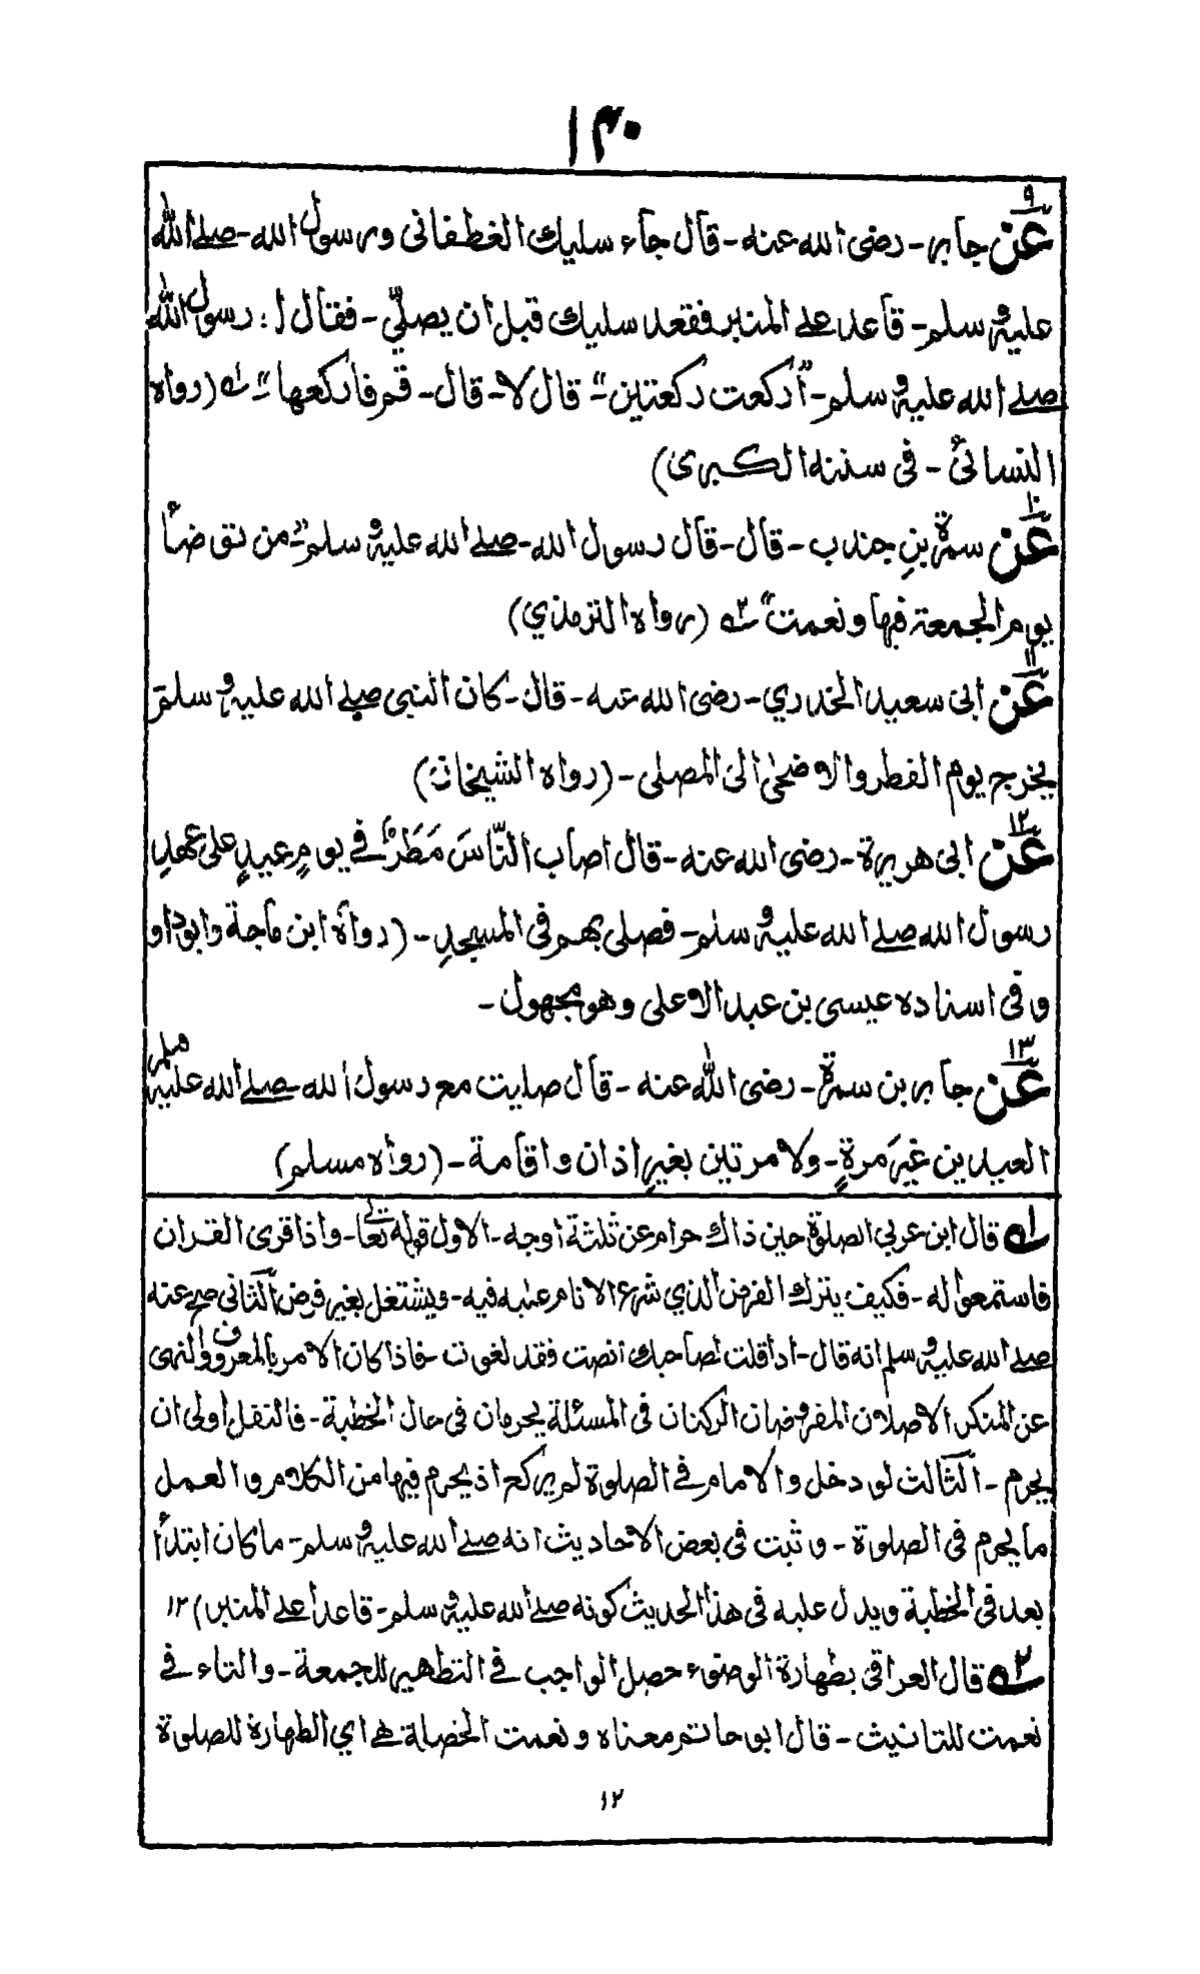 ١٣٠
٩
عن جابر - رضى الله عنه - قال جاء سليك الغطفانى ورسول الله - صلے الله
عليه وسلم - قاعد علے المنبر فقعد سليك قبل ان يصلّي - فقال ل : رسول الله
صلے الله عليه وسلم - "أركعت ركعتين" قال لا - قال - قم فاركعها" - له (رواه
النسائىُ - فى سننه الكبرىٰ)
١٠
عن سمرة بنِ جندب - قال - قال رسول الله - صلے الله عليه وسلم - "من توضأ
يوم الجمعة فبها ونعمت" ٢ه (رواه الترمذي)
١١
عن ابى سعيد الخدري - رضى الله عنه - قال - كان النبى صلے الله عليه وسلم
يخرج يوم الفطر والاضحىٰ الى المصلى - (رواه الشيخان)
١٢
عن ابى هريرة - رضى الله عنه - قال اصاب النّاسَ مَطَرٌ فے يومٍ عيدٍ على عهدِ
رسول الله صلے الله عليه وسلم - فصلى بهم فى المسجدِ - (رواه ابن ماجة وابوداو
وفى اسناده عيسى بن عبد الاعلى وهو مجهول -
١٣
عن جابر بن سمرة - رضى الله عنه - قال صليت مع رسول الله - صلے الله عليه وسلم
العيدين غيرَ مرةٍ - ولا مرتين بغيرِ اذان واقامة - (رواه مسلم)
له قال ابن عربي الصلوة حين ذاك حرام عن ثلثة اوجه - الاول قوله تعالى - واذا قرى القران
فاستمعوا له - فكيف يترك الفرض الذي شرع الامام علبه فيه - ويشتغل بغير فرض الثانى صح عنه
صلے الله عليه وسلم انه قال - اذا قلت لصاحبك انصت فقد لغوت - فاذا كان الامر بالمعروف والنهى
عن المنكر الاصلان المفروضان الركنان فى المسئلة يحرمان فى حال الخطبة - فالنفل اولى ان
يحرم - الثالث لو دخل والامام فے الصلوة لم يركع اذ يحرم فيها من الكلام والعمل
ما يحرم فى الصلوة - وثبت فى بعض الاحاديث انه صلے الله عليه وسلم - ما كان ابتدأ
بعد فى الخطبة ويدل علبه فى هذا الحديث كونه صلے الله عليه وسلم - قاعداً علے المنبر) ١٢
٢ه قال العراقى بطهارة الوضوء حصل الواجب فے التطهير للجمعة - والتاء فے
نعمت للتانيث - قال ابو حاتم معناه ونعمت الخصلة هے اي الطهارة للصلوة
١٢